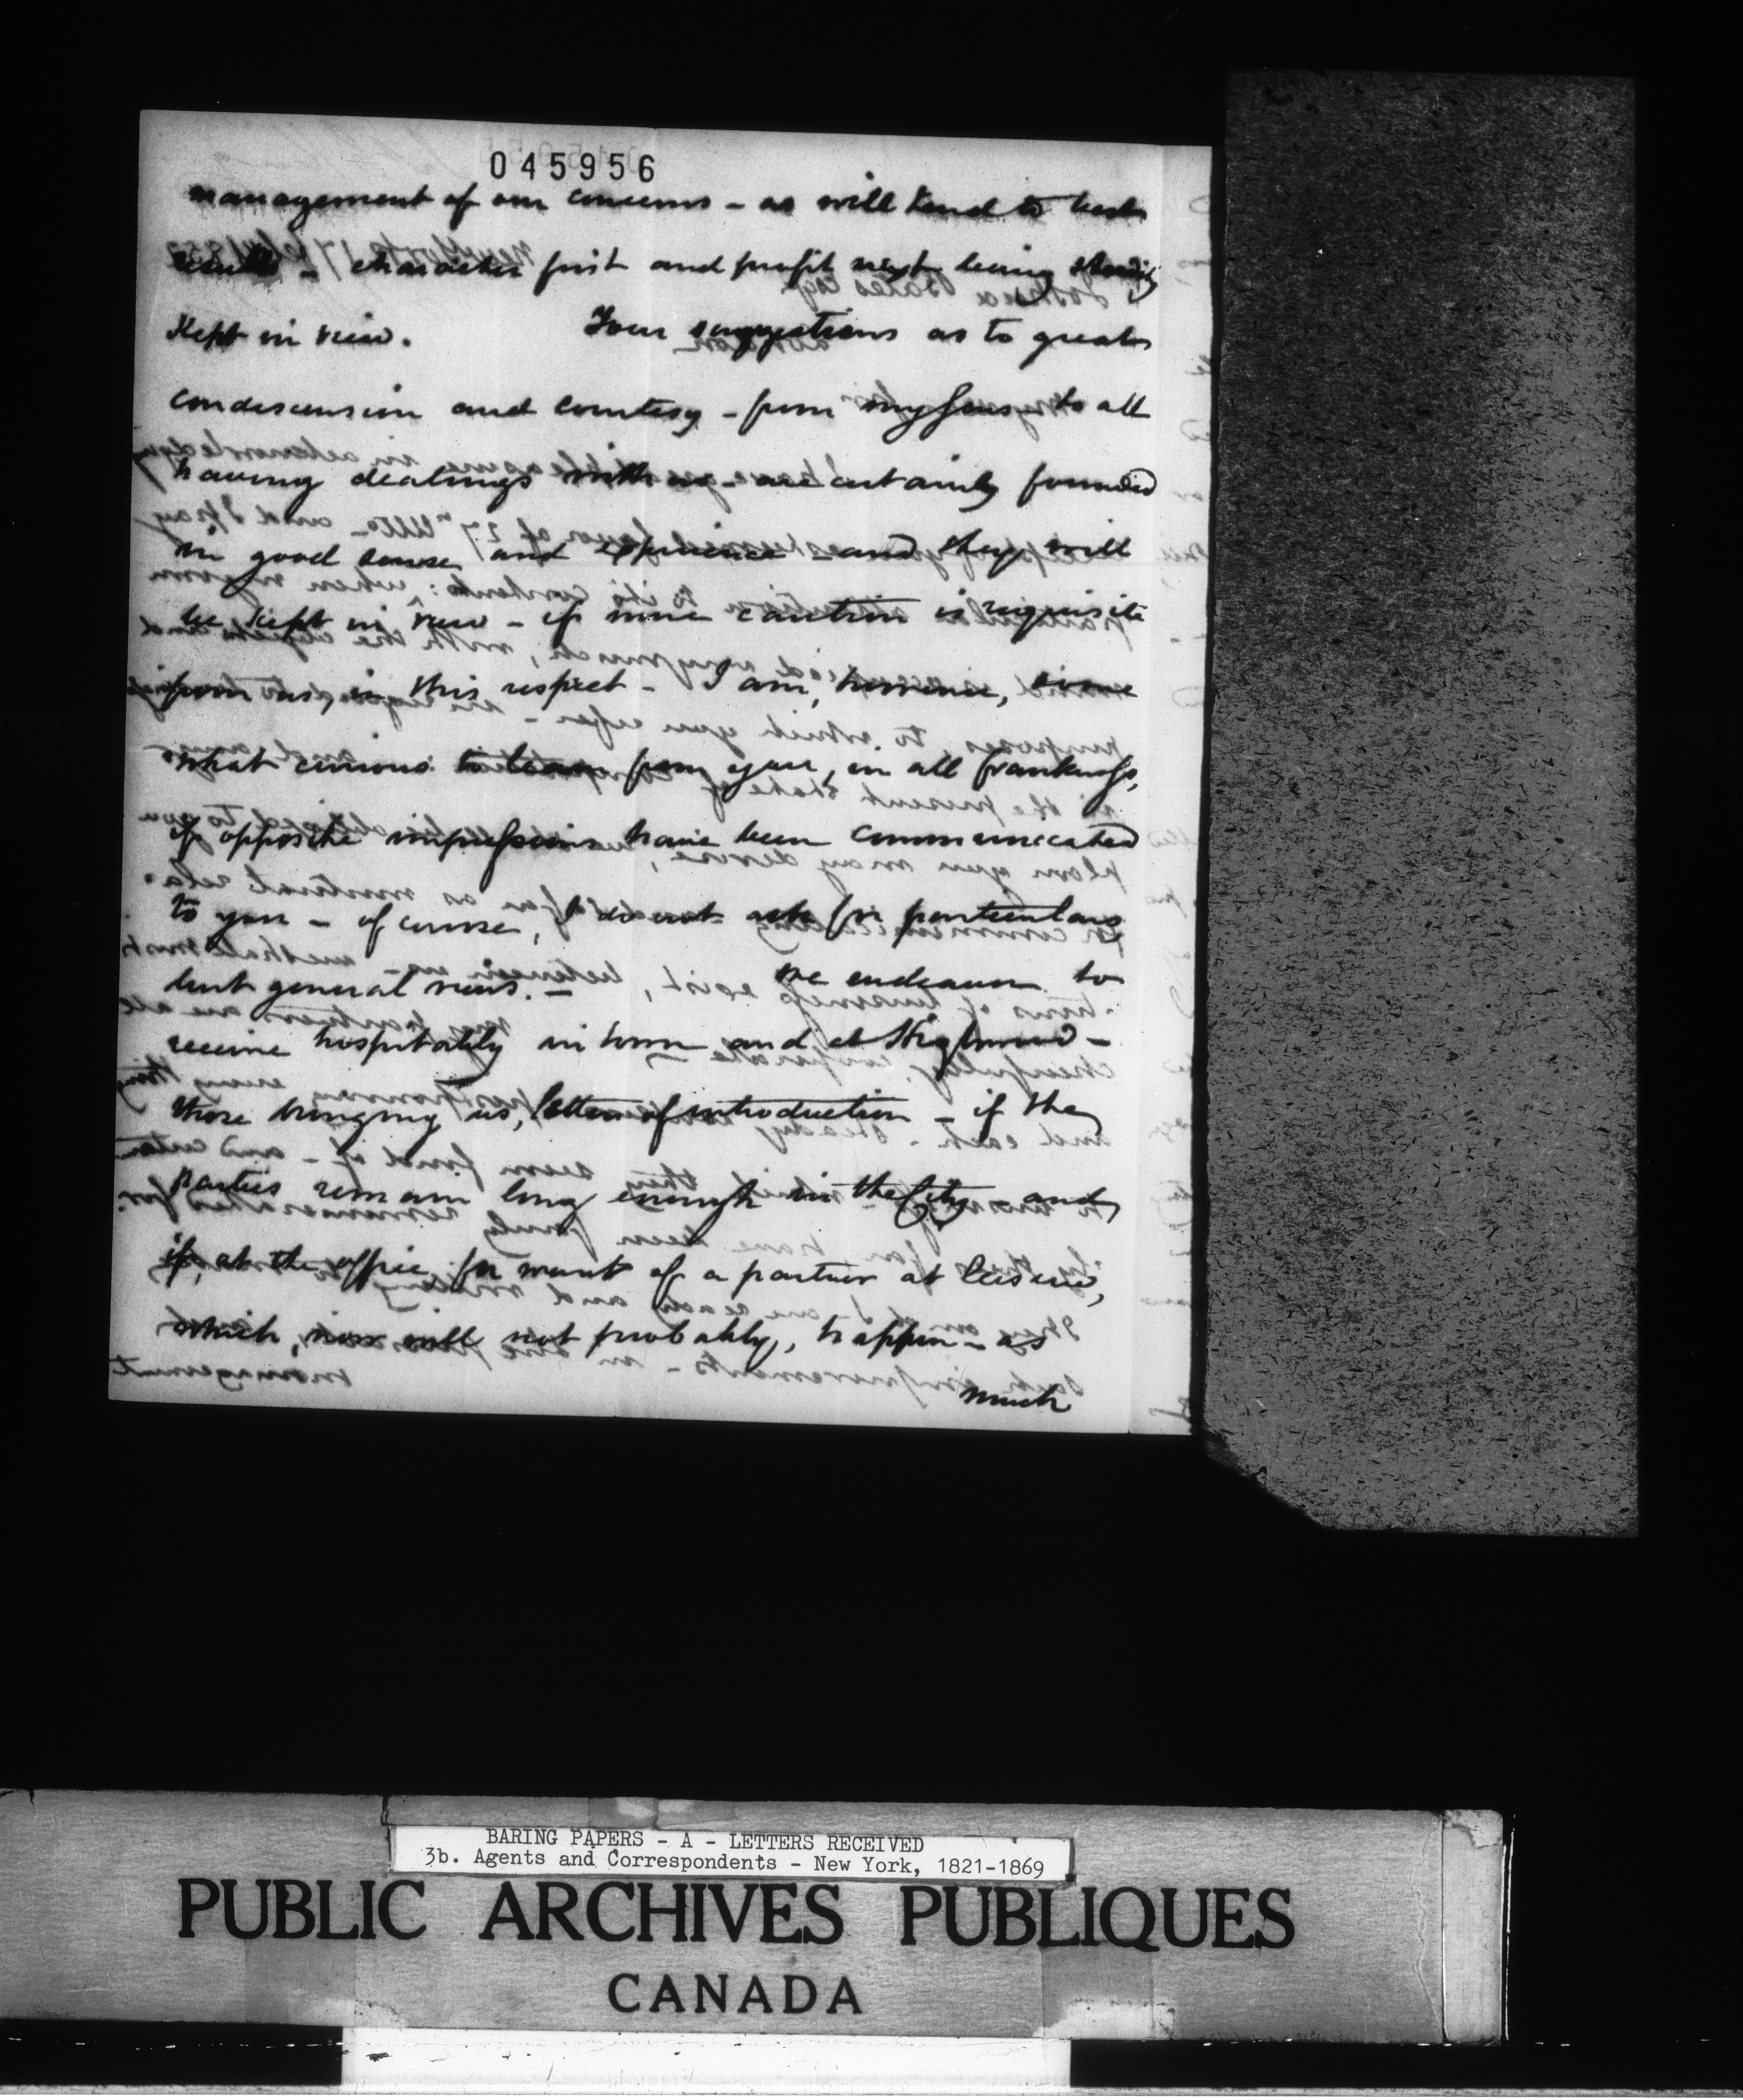 045956
management of our concerns - as will tend to best
results - character first and profit next being steadily
kept in view. Your suggestions as to great
condescension and courtesy - from my house to all
having dealings with us - are certainly founded
in good sense and experience - and they will
be kept in view - if more caution is requisite
from us, in this respect - I am, however, some
what curious to learn from you, in all frankness,
if opposite impressions have been communicated
to you - of course, I do not ask for particulars
but general views. - We endeavor to
receive hospitably in town and at Highwood -
those bringing us, letters of introduction - if the
parties remain long enough in the City - and
if, at the office for want of a partner at leisure,
which, now will not probably, happen - as
much
BARING PAPERS - A - LETTERS RECEIVED
3b. Agents and Correspondents - New York, 1821-1869
PUBLIC ARCHIVES PUBLIQUES
CANADA